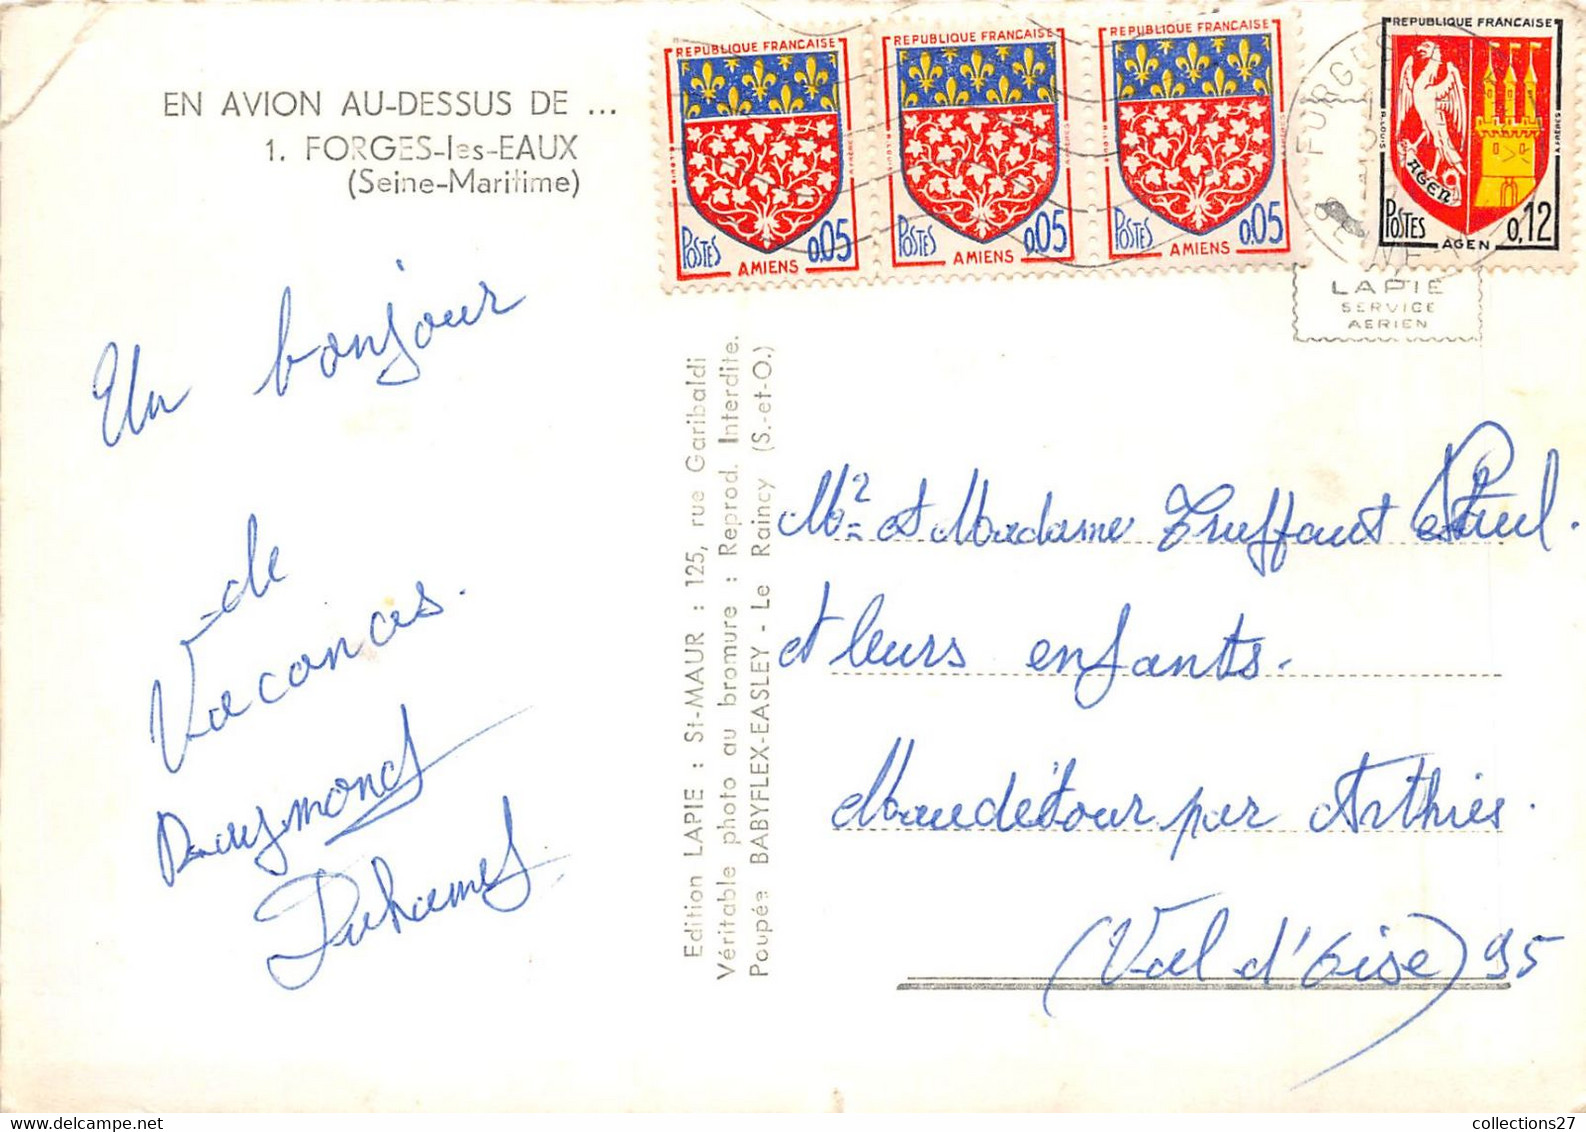 EN AVION AU-DESSUS DE ...
1. FORGES-les-EAUX
(Seine-Maritime)
REPUBLIQUE FRANCAISE
POSTES 0,05
AMIENS
REPUBLIQUE FRANCAISE
POSTES 0,05
AMIENS
REPUBLIQUE FRANCAISE
POSTES 0,05
AMIENS
REPUBLIQUE FRANCAISE
AGEN
POSTES 0,12
AGEN
FORGES
LAPIE
SERVICE
AERIEN
Un bonjour
de
Vacances.
Raymond
Duhamel
Edition LAPIE : St-MAUR : 125, rue Garibaldi
Véritable photo au bromure : Reprod. Interdite.
Poupée BABYFLEX-EASLEY - Le Raincy (S.-et-O.)
Mr et Madame Truffaut Paul.
et leurs enfants.
Maudétour par Arthies.
(Val d'Oise) 95
collections27